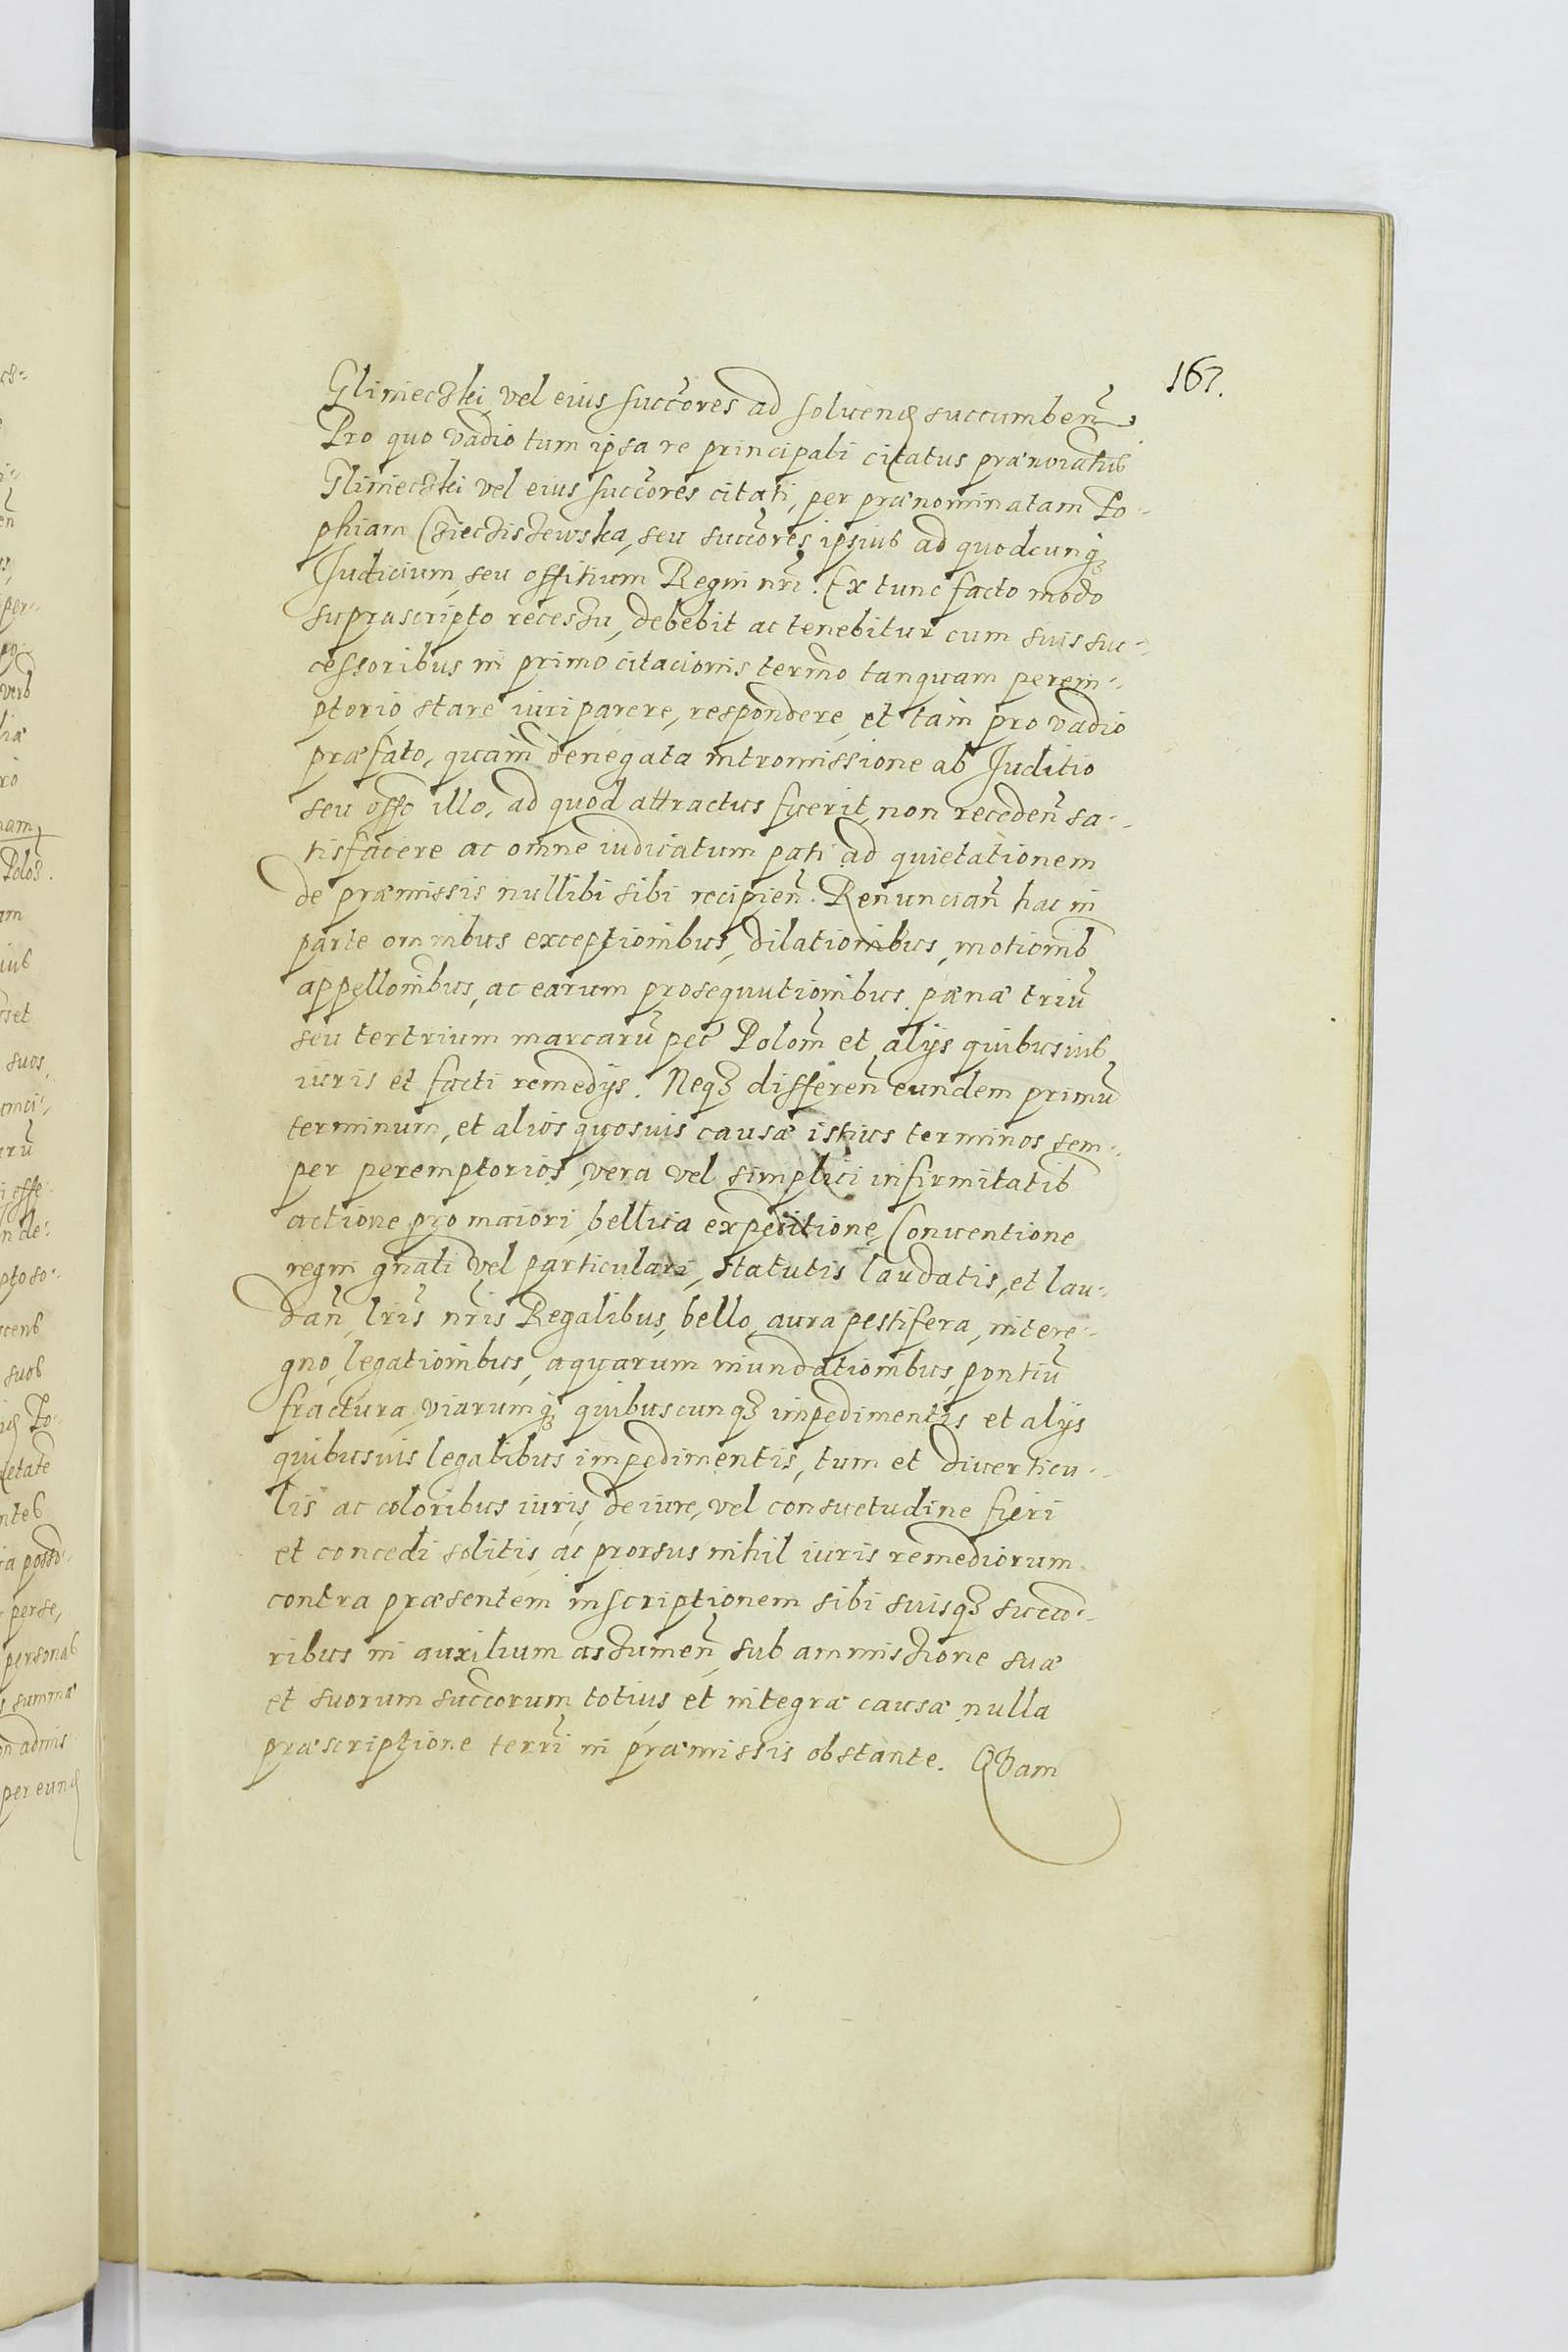 167.
Glinieczki vel eius succores ad soluend succumben̄.
Pro quo vadio tum ipsa re principali citatus prænoiatus
Glinieczki vel eius succores citati, per prænominatam Zo-
phiam Czieciszewska, seu succores ipsius ad quodcunqʒ
Judicium, seu offitium Regni nr̄i. Ex tunc facto modo
suprascripto recessu, debebit ac tenebitur cum suis suc-
cessoribus in primo citacionis termo tanquam perem-
ptorio stare iuri parere, respondere, et tam pro vadio
præfato, quam denegata intromissione ab Juditio
seu offo illo, ad quod attractus fuerit, non receden̄ sa-
tisfacere ac omne iudicatum pati ad quietationem
de præmissis nullibi sibi recipien̄. Renuncian̄ hac in
parte omnibus exceptionibus, dilationibus, motionib
appellonibus, ac earum prosequutionibus pænæ triū
seu tertrium marcarū pec̄ Polon̄ et alijs quibusuis
iuris et facti remedijs. Neqʒ differen̄ eundem primū
terminum, et alios quosuis causæ istius terminos sem-
per peremptorios, vera vel simplici infirmitatib
actione pro maiori, bellica expeditione, Conuentione
regni gnali vel particulari, statutis laudatis, et lau-
dan̄, lr̄is nr̄is Regalibus, bello, aura pestifera, intere-
gno, legationibus, aquarum inundationibus, pontiū
fractura, viarumqʒ quibuscunqʒ impedimentis et alijs
quibusuis legalibus impedimentis, tum et diuerticu-
lis ac coloribus iuris, de iure, vel consuetudine fieri
et concedi solitis, ac prorsus nihil iuris remediorum
contra præsentem inscriptionem sibi suisqʒ succo-
ribus in auxilium assumen̄, sub ammissione suæ
et suorum succorum totius et integræ causæ nulla
præscriptione terr̄i in præmissis obstante. Qvam